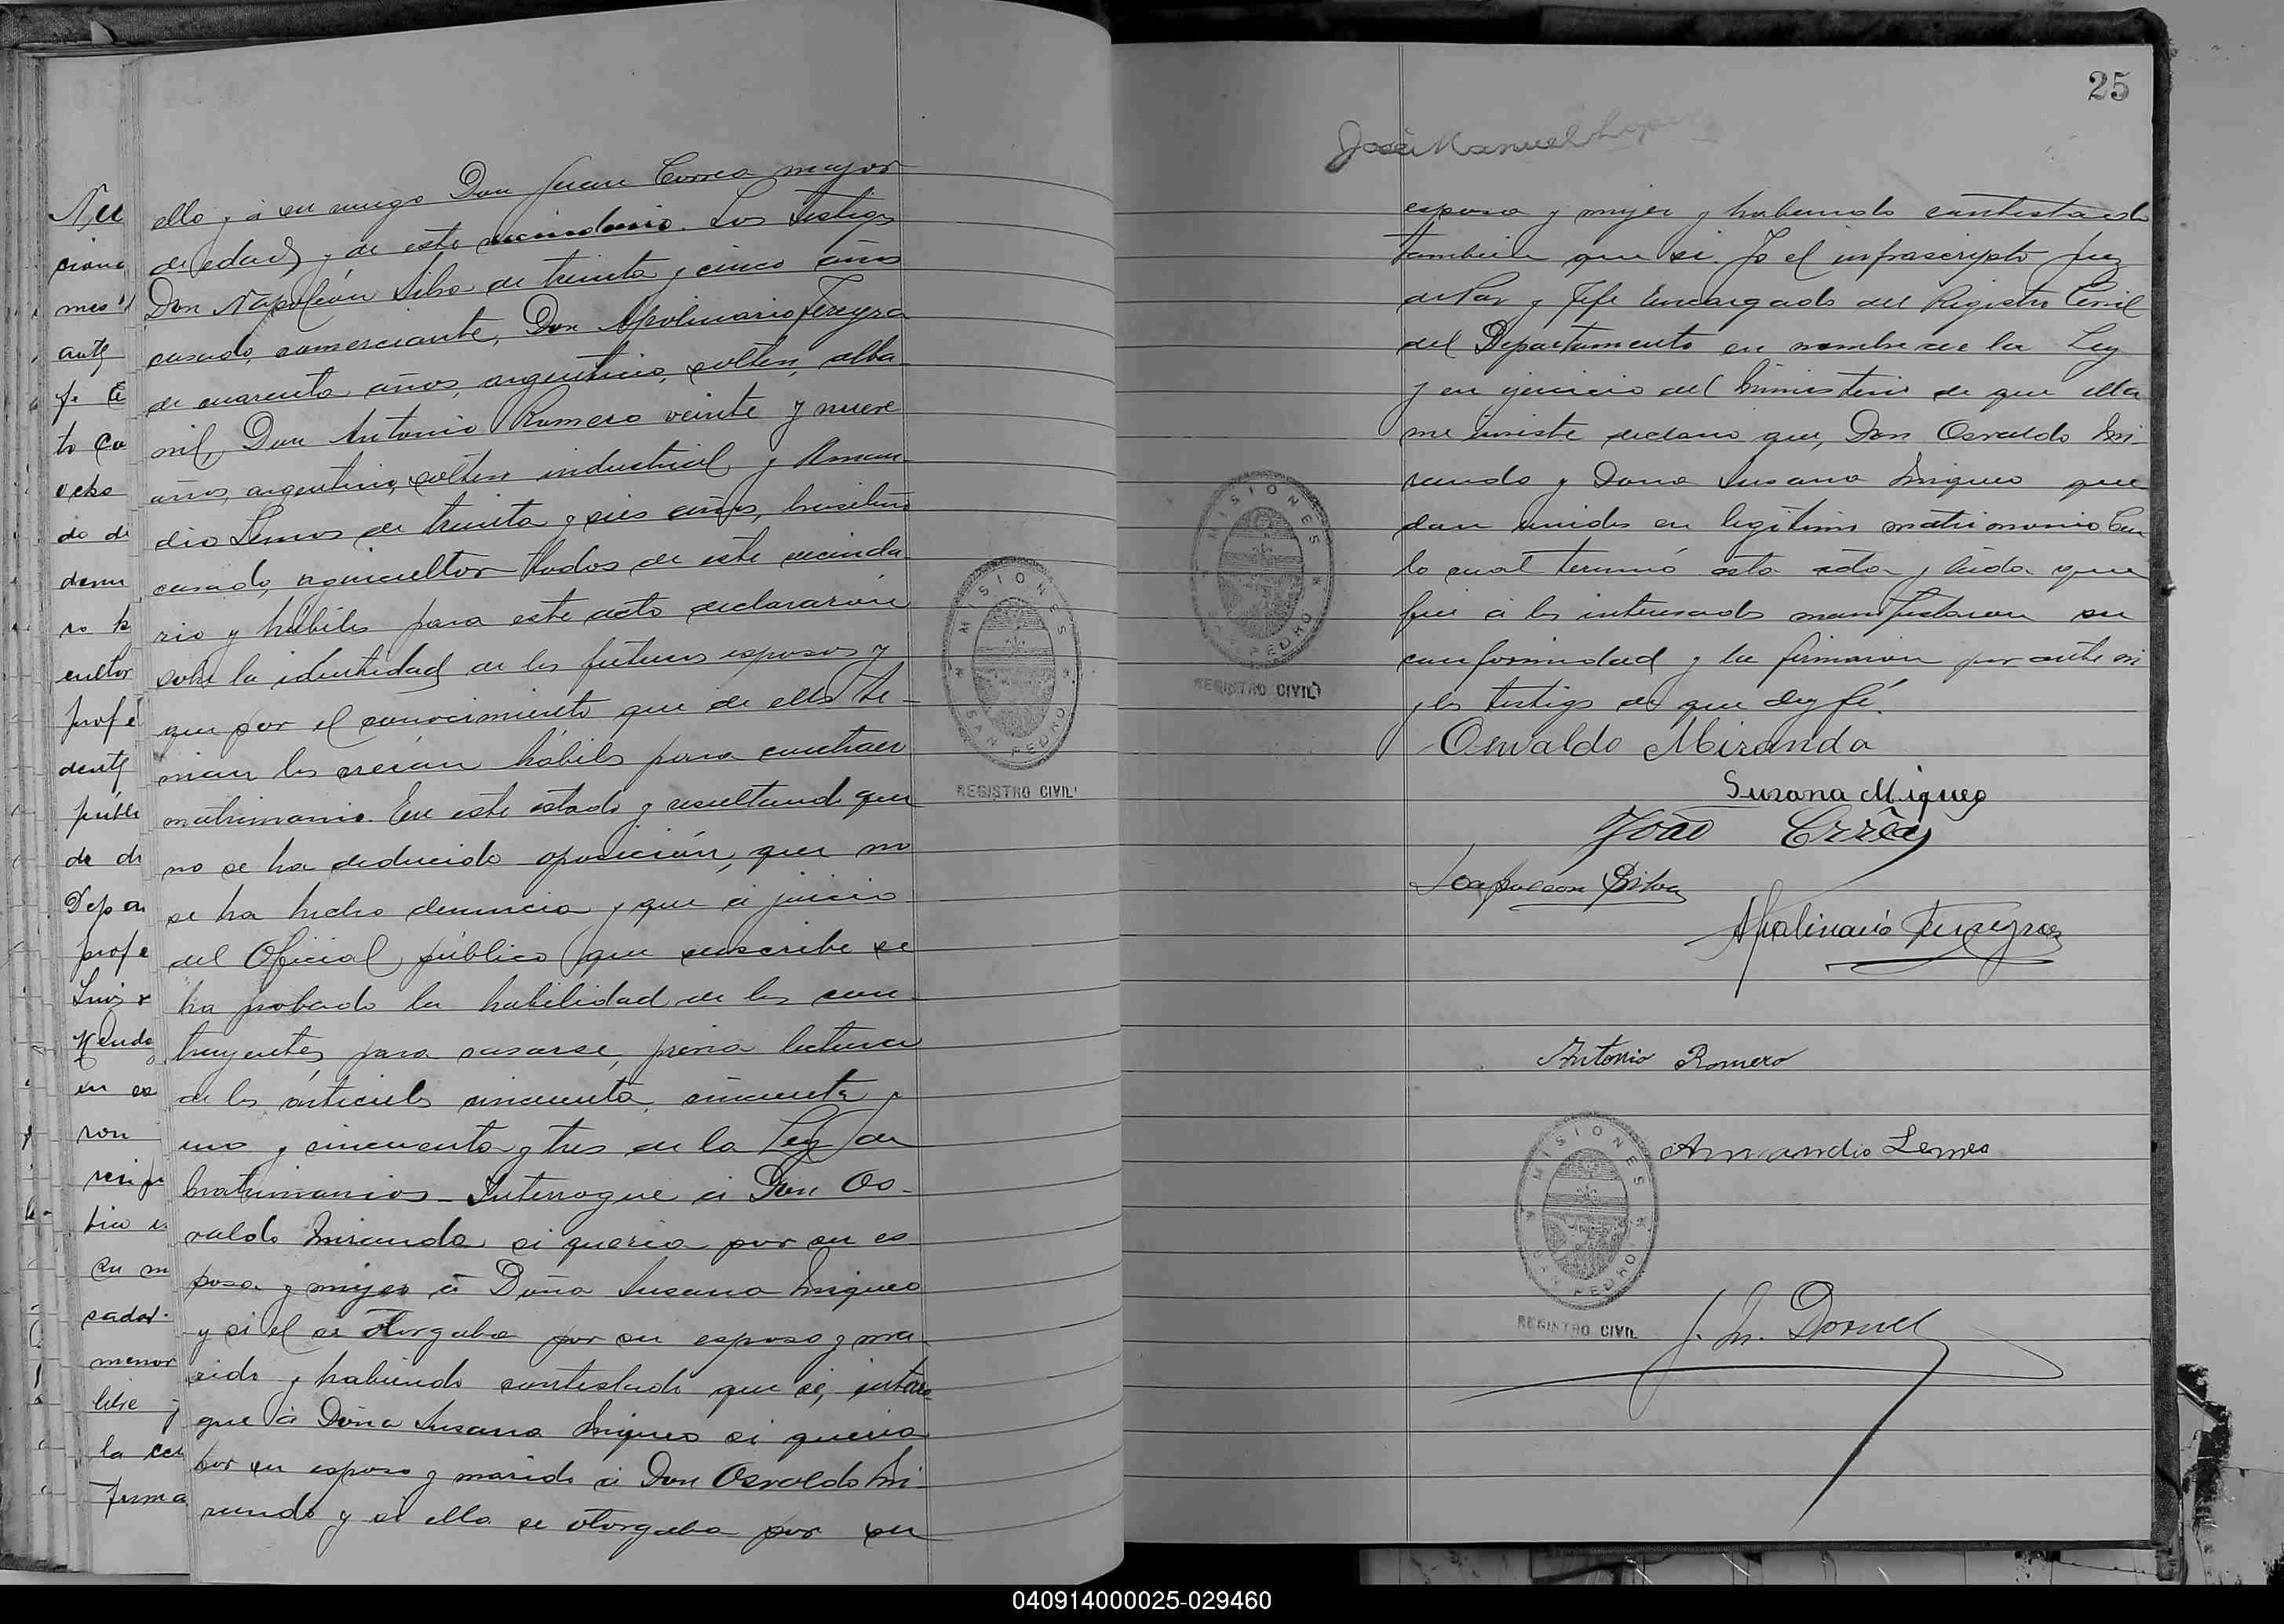 ello, á su ruego Don Juan Correa mayor
de edad, y de este vecindario. Los testigos
Don Napoleón Silva de treinta y cinco años
casado, comerciante, Don Apolinario Fereyra
de cuarenta años, argentino, soltero, alba-
ñil, Don Antonio Romero veinte y nueve
años, argentino, soltero industrial y Aman-
dio Lemos de treinta y seis años, brasilero
casado, agricultor todos de este vecinda-
rio y hábiles para este acto declararon
sobre la identidad de los futuros esposos y
que por el conocimiento que de ellos te-
nian los creian hábiles para contraer
matrimonio. En este estado y resultando que
no se ha deducido oposición, que no
se ha hecho denuncia y que á juicio
del Oficial público que suscribe se
ha probado la habilidad de los con-
trayentes, para casarse, prévia lectura
de los artículos cincuenta, cincuenta y
uno y cincuenta y tres de la Ley de
Matrimonios - Interrogué á Don Os-
valdo Miranda si queria por su es-
posa y mujer á Doña Susana Miqueo
y si el se otorgaba por su esposo y ma-
rido y habiendo contestado que si, interro-
gué á Doña Susana Miqueo si queria
por su esposo y marido á Don Osvaldo Mi-
randa y si ella se otorgaba por su
Nu
ciona
mes d
ante
to ca
ocho
do di
cultor
profe
públi
de di
Depar
profe
Luis
en es
ron
en su
menor
libre y
firma
25
José Manuel
esposa y mujer y habiendo contestado
tambien que si. Yo el infrascripto Juez
de Paz y Jefe Encargado del Registro Civil
del Departamento en nombre de la Ley
y en ejercicio del Ministerio de que ella
me inviste declaro que, Don Osvaldo Mi-
randa y Doña Susana Miqueo que-
dan unidos en legítimo matrimonio Con
lo cual terminó esta acta y leida que
fué á los interesados manifestaron su
conformidad y la firmaron por ante mi
y los testigos de que doy fé.
Osvaldo Miranda
Susana Miqueo
João Corrêa
Napoleon Silva
Apolinario Fereyra
Antonio Romero
Amandio Lemos
J. M. Dornel
MISIONES
SAN PEDRO
REGISTRO CIVIL
MISIONES
SAN PEDRO
REGISTRO CIVIL
MISIONES
SAN PEDRO
REGISTRO CIVIL
040914000025-029460